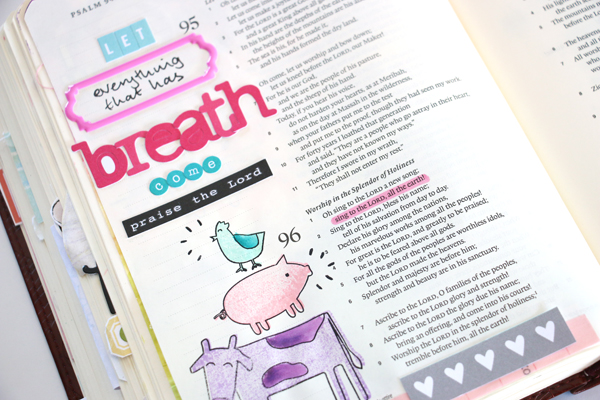 PSALM 9
LET
everything
that has
breath
come
praise the Lord
95
and his hands formed the dry land.
Oh come, let us worship and bow down;
let us kneel before the LORD, our Maker!
For he is our God,
and we are the people of his pasture,
and the sheep of his hand.
Today, if you hear his voice,
do not harden your hearts, as at Meribah,
as on the day at Massah in the wilderness,
when your fathers put me to the test
and put me to the proof, though they had seen my work.
10 For forty years I loathed that generation
and said, “They are a people who go astray in their heart,
and they have not known my ways.”
11 Therefore I swore in my wrath,
“They shall not enter my rest.”
Worship in the Splendor of Holiness
96
Oh sing to the LORD a new song;
sing to the LORD, all the earth!
2 Sing to the LORD, bless his name;
tell of his salvation from day to day.
3 Declare his glory among the nations,
his marvelous works among all the peoples!
4 For great is the LORD, and greatly to be praised;
he is to be feared above all gods.
5 For all the gods of the peoples are worthless idols,
but the LORD made the heavens.
6 Splendor and majesty are before him;
strength and beauty are in his sanctuary.
7 Ascribe to the LORD, O families of the peoples,
ascribe to the LORD glory and strength!
8 Ascribe to the LORD the glory due his name;
bring an offering, and come into his courts!
9 Worship the LORD in the splendor of holiness;
tremble before him, all the earth!